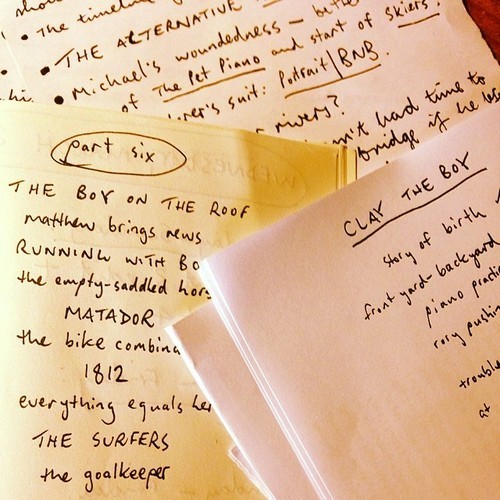 • The timeline
• THE ALTERNATIVE
• Michael's woundedness –
of The Pet Piano and start of skiers.
suit: Portrait/BNB.
rivers?
had time to
bridge if he
part six
THE BOY ON THE ROOF
matthew brings news
RUNNING WITH BO
the empty-saddled hors
MATADOR
the bike combina
1812
everything equals her
THE SURFERS
the goalkeeper
CLAY THE BOY
story of birth
front yard-backyard
piano practi
rory pushin
trouble
at